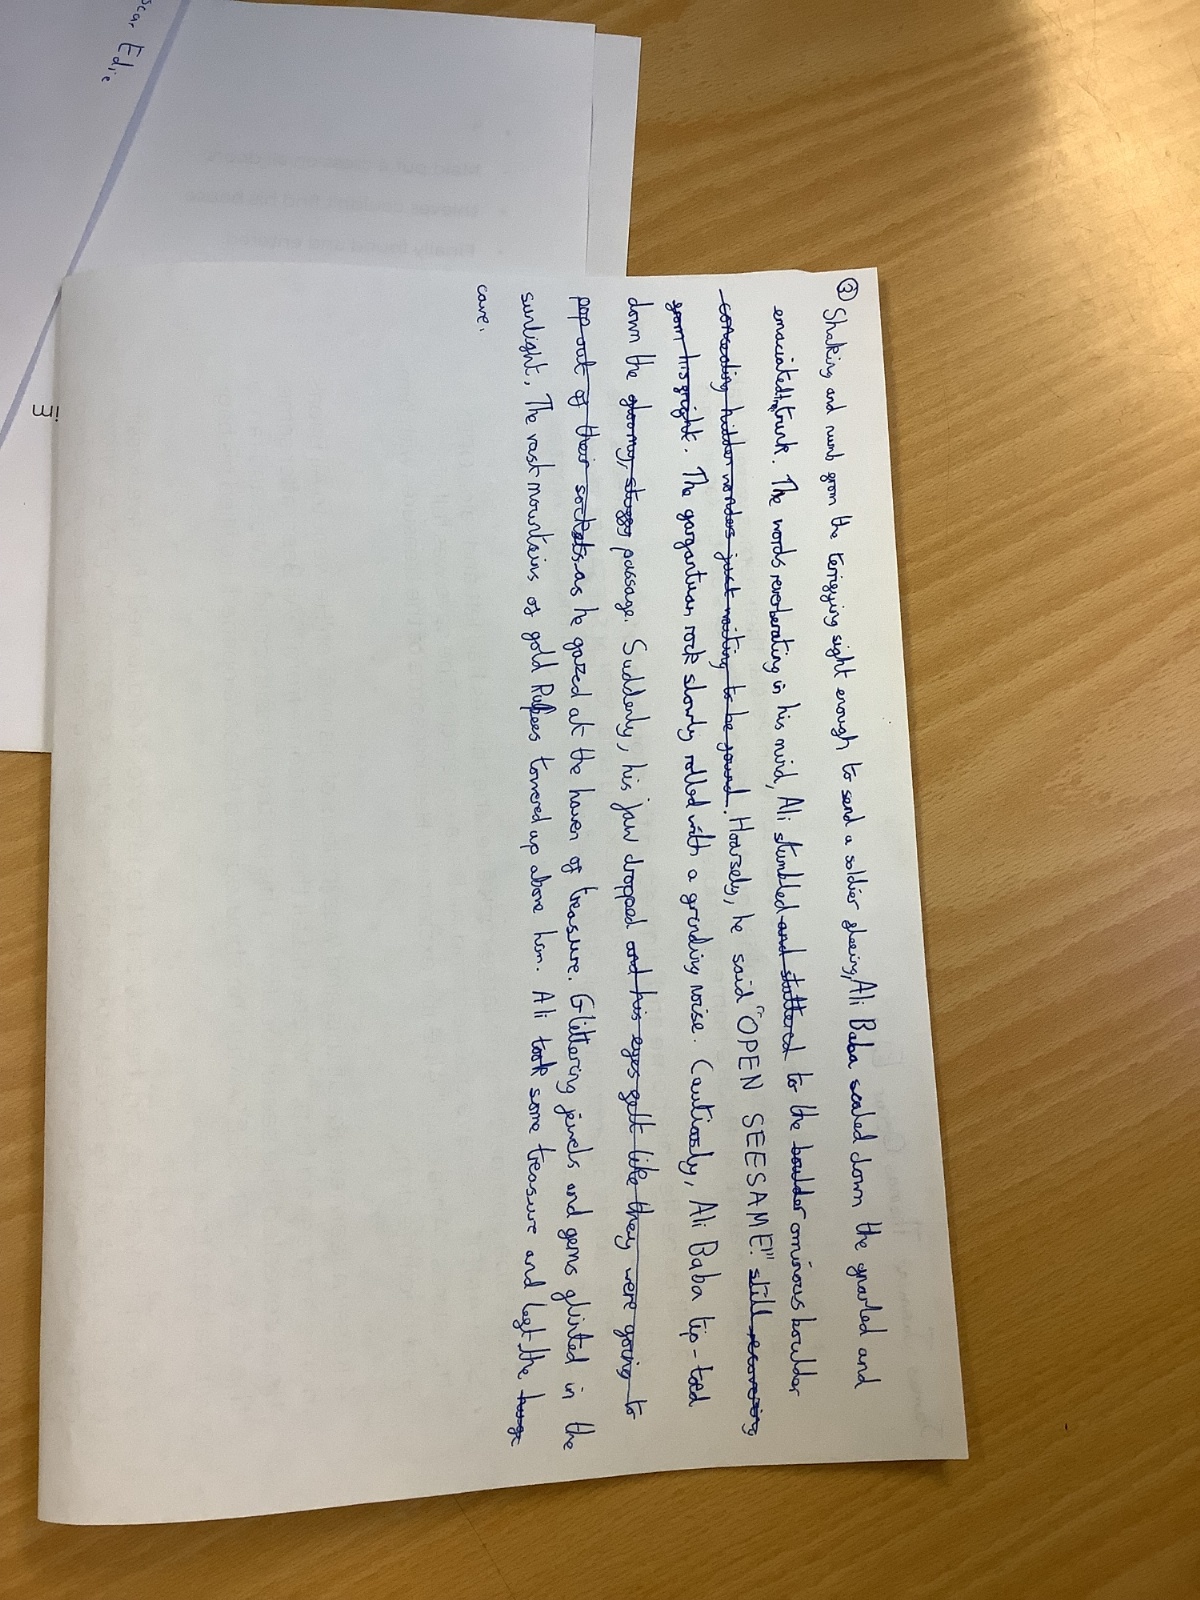 ② Shaking and numb from the terrifying sight enough to send a soldier fleeing, Ali Baba scaled down the gnarled and
emaciated trunk. The words reverberating in his mind, Ali stumbled and stuttered to the boulder ominous boulder
concealing hidden wonders just waiting to be found. Hoarsely, he said "OPEN SEESAME!" still recovering
from his fright. The gargantuan rock slowly rolled with a grinding noise. Cautiously, Ali Baba tip-toed
down the gloomy, passage. Suddenly, his jaw dropped and his eyes felt like they were going to
pop out of their sockets as he gazed at the haven of treasure. Glittering jewels and gems glinted in the
sunlight. The vast mountains of gold Rupees towered up above him. Ali took some treasure and left the huge
cave.
scar Edie
im